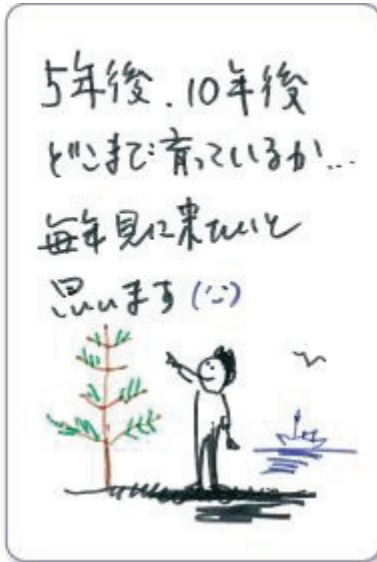 5年後．10年後
どこまで育っているか...
毎年見に来たいと
思います(¨)